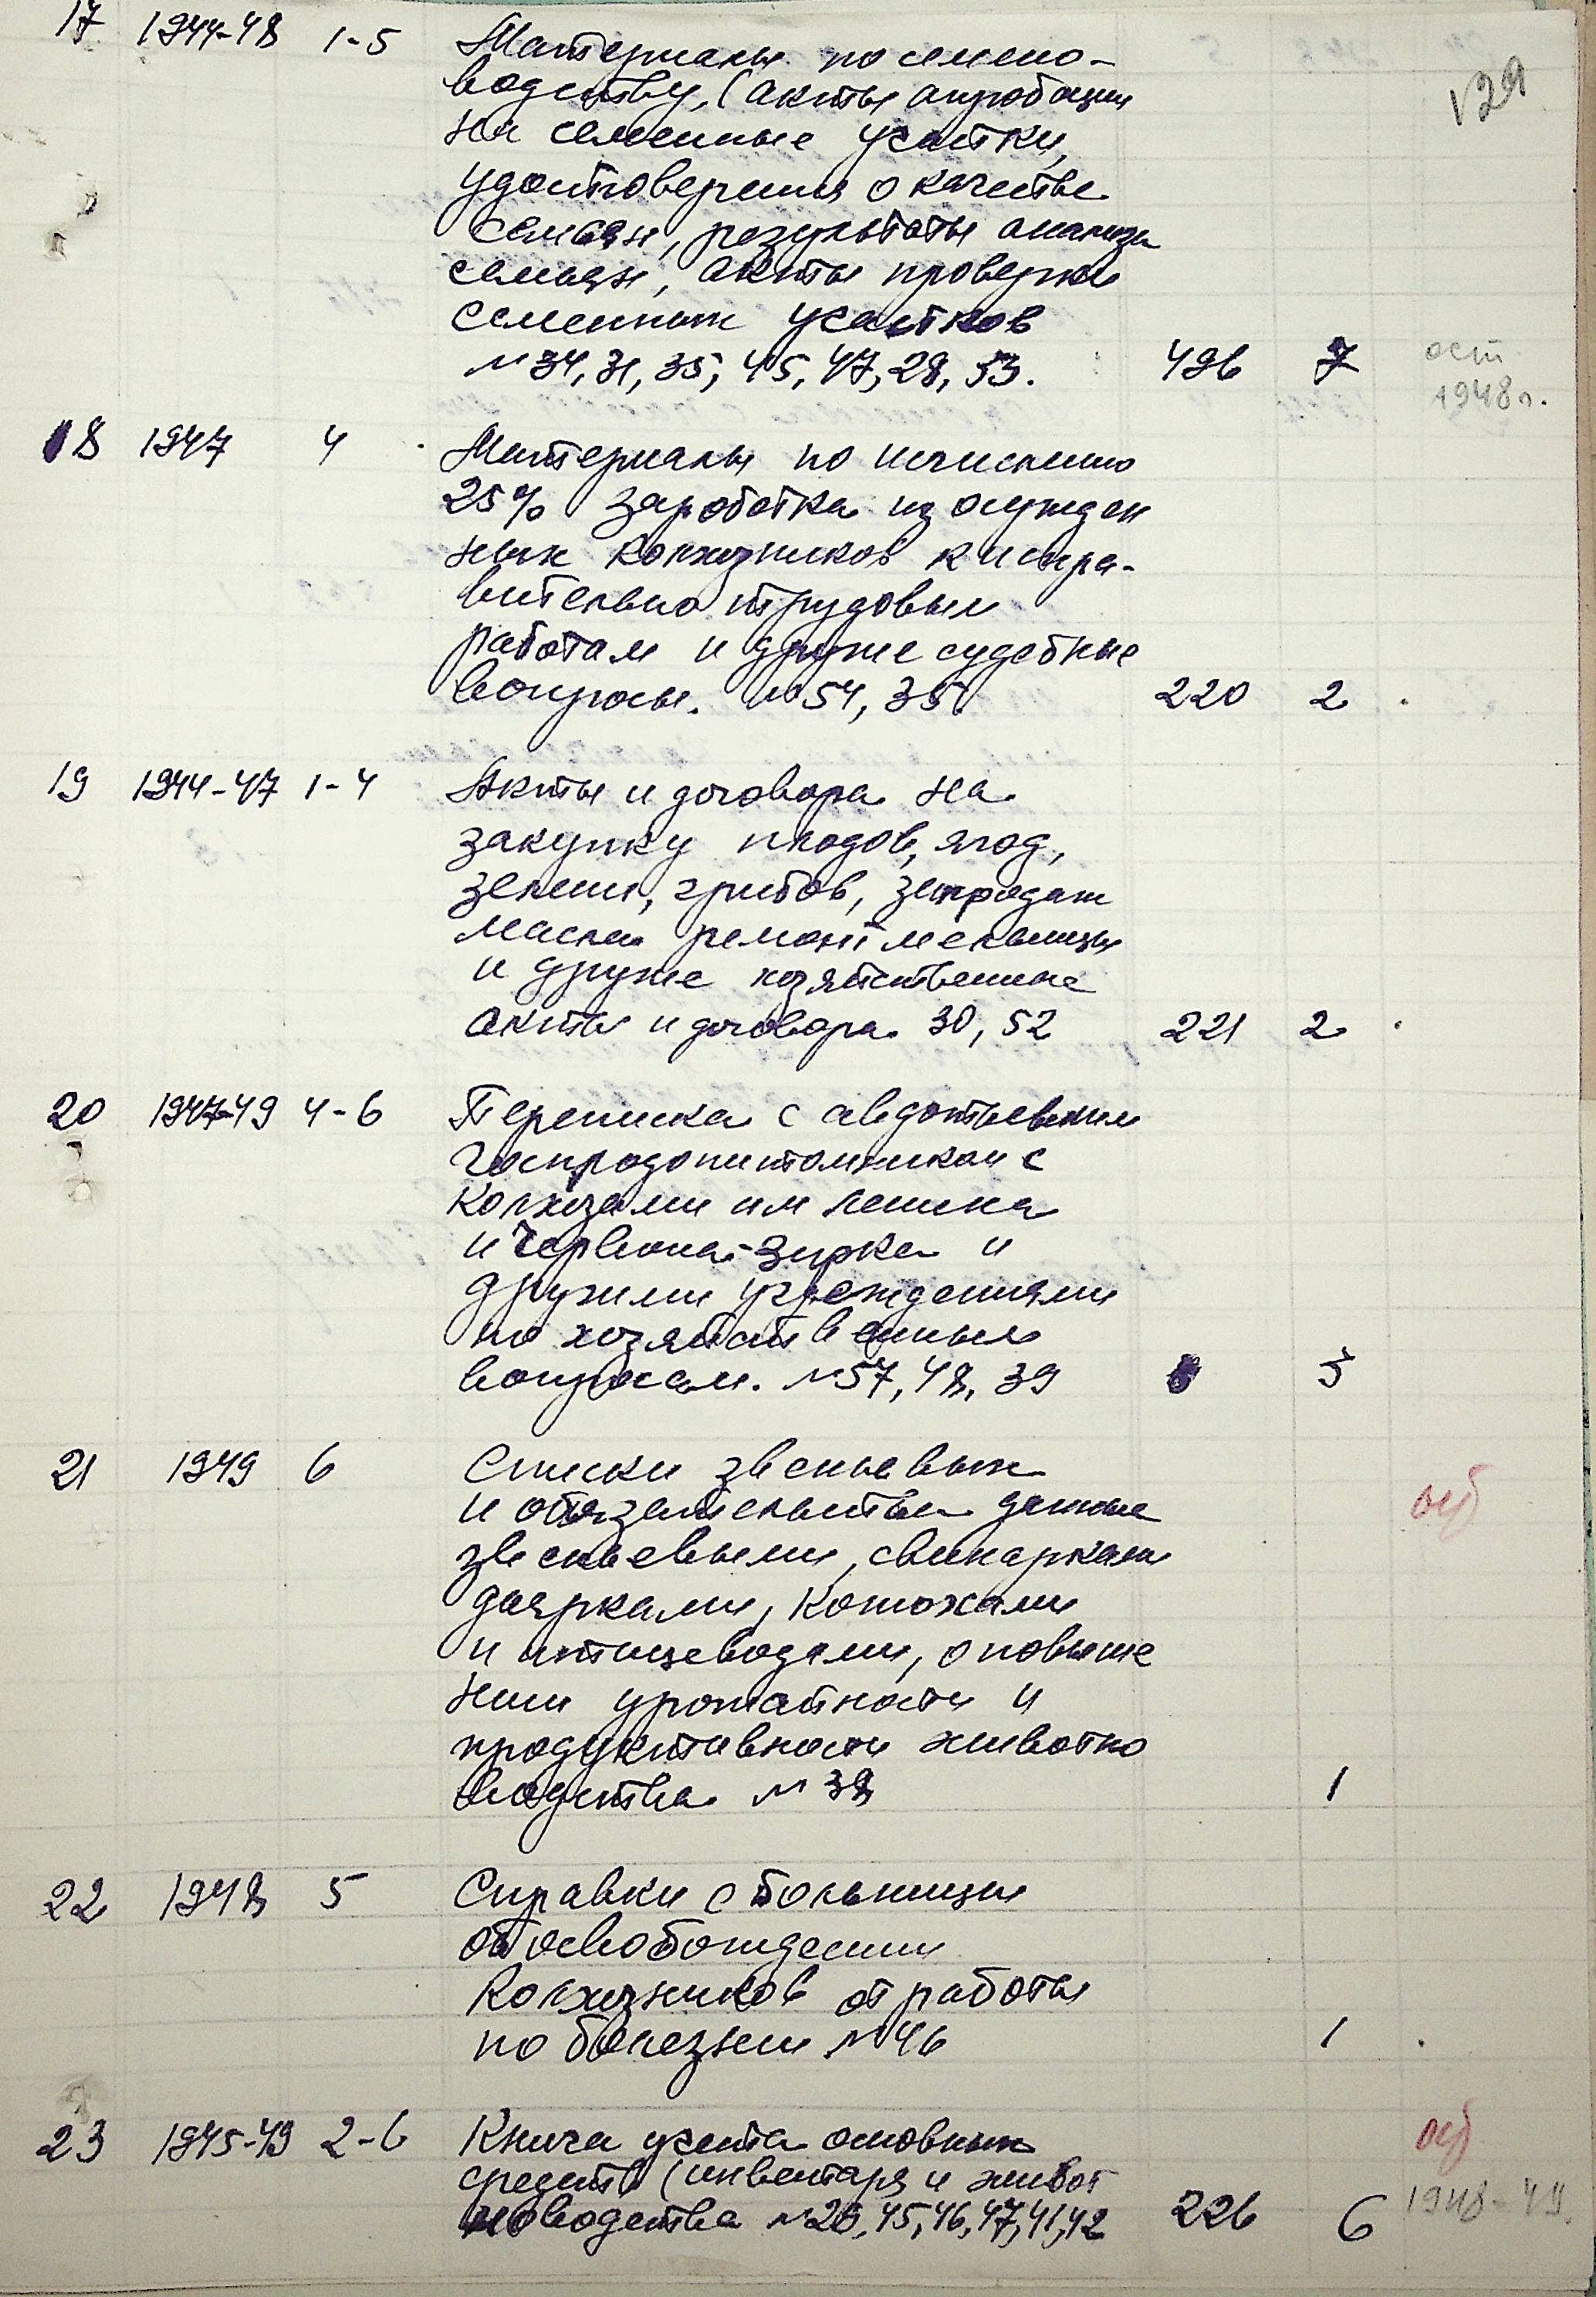 129
17 1944-48 1-5 Материалы по семено-
водству, (акты апробации
на семенные участки,
удостоверения о качестве
семян, результаты анализа
семян, акты проверки
семенных участков
№ 34, 31, 35, 45, 47, 28, 53. 496 7 ост
1948 г.
18 1947 4 Материалы по исчислению
25% заработка из осужден
ных колхозников к испра-
вительно трудовым
работам и другие судебные
вопросы. № 54, 35. 220 2
19 1944-47 1-4 Акты и договора на
закупку плодов, ягод,
зелени, грибов,
масла ремонт мельницы
и другие хозяйственные
акты и договора 30, 52 221 2
20 1947-49 4-6 Переписка с авдотьевским
госпродопитомником с
колхозами им ленина
и Червона-Зирка и
другими учреждениями
по хозяйственным
вопросам. № 57, 48, 39 3
21 1949 6 Списки звеньевых
и обязательства данные
звеньевыми, свинарками
доярками, конюхами
и птицеводами, о повыше
нии урожайности и
продуктивности животно
водства № 38 1
22 1948 5 Справки с больницы
об освобождении
колхозников от работы
по болезни № 46 1
23 1945-49 2-6 Книга учета основных
средств (инвентаря и живот
новодства № 20, 45, 46, 47, 41, 42 226 6 1948-49.